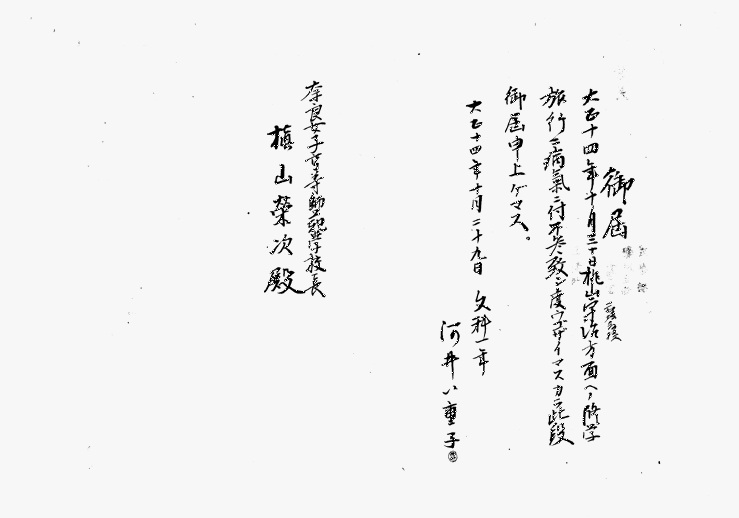 御届
大正十四年十月三十日桃山宇治方面ヘノ修学
旅行ニ病氣ニ付不参致シ度ウゴザイマスカラ此段
御届申上ゲマス。
大正十四年十月二十九日
文科一年
河井八重子
奈良女子高等師範学校長
槙山榮次殿